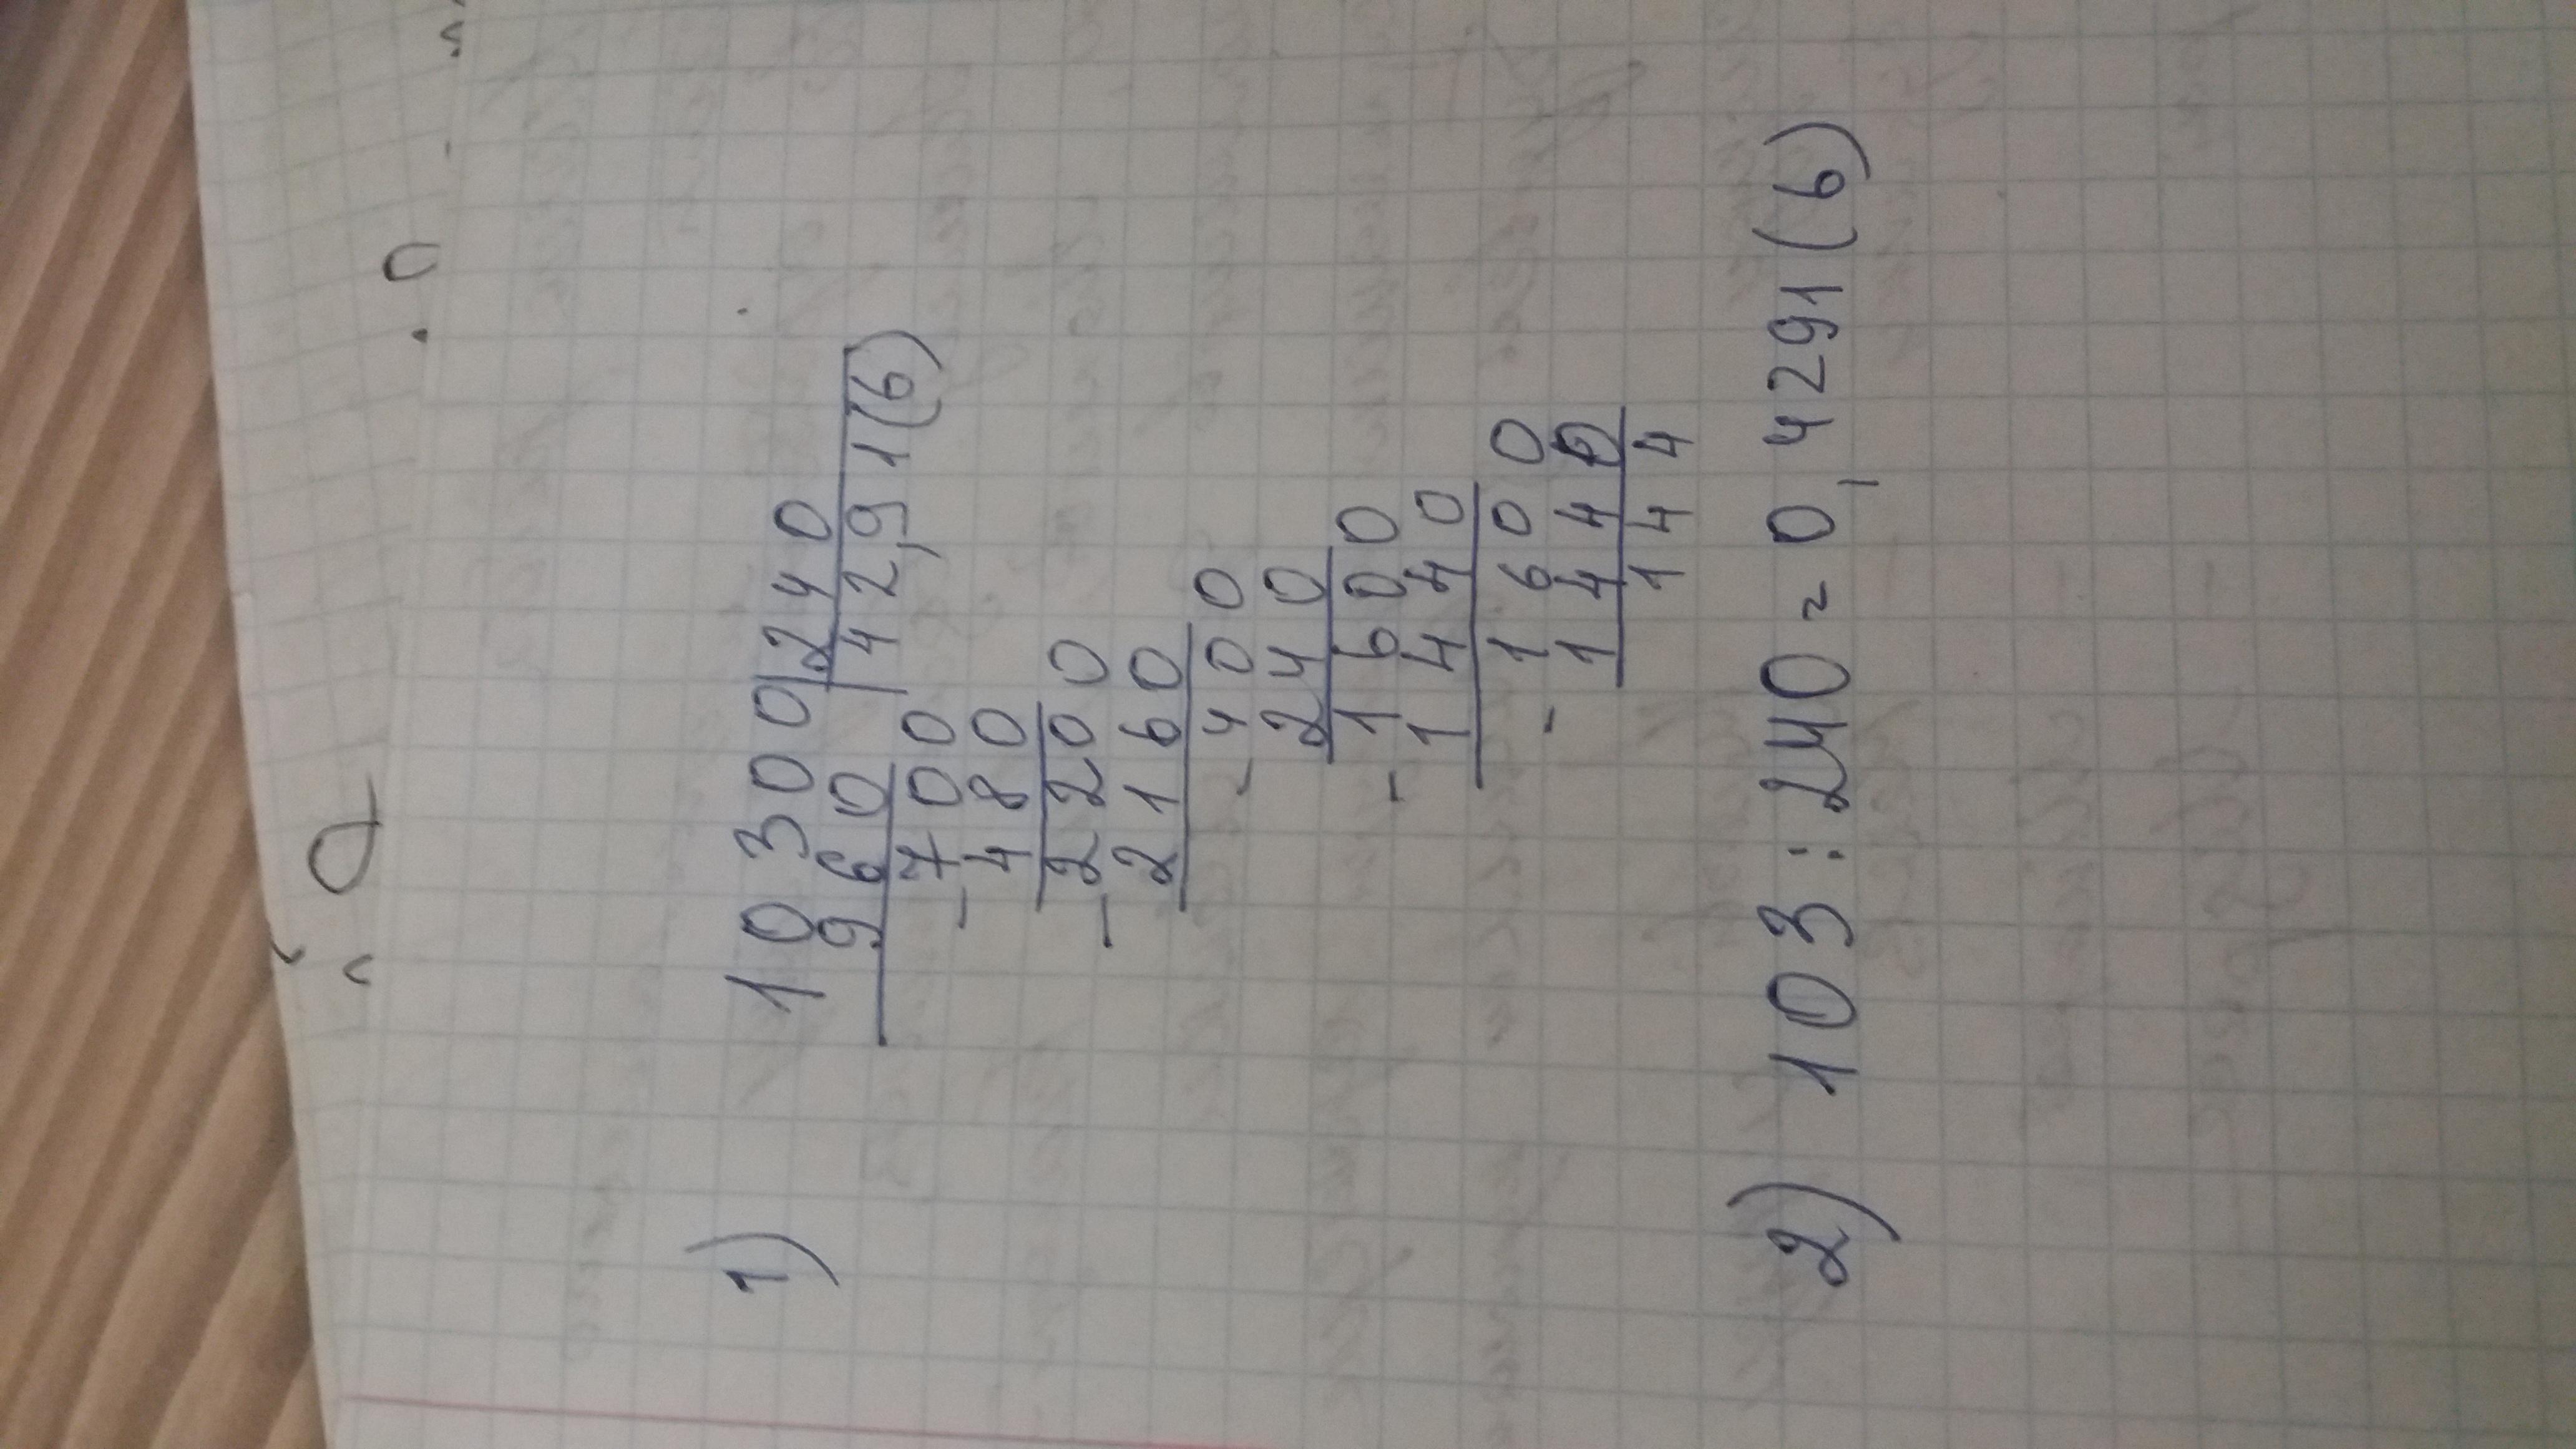 1) 10300|240
960 42,91(6)
- 700
480
- 2200
2160
- 400
240
- 1600
1440
- 1600
1440
144
2) 103:240=0,4291(6)